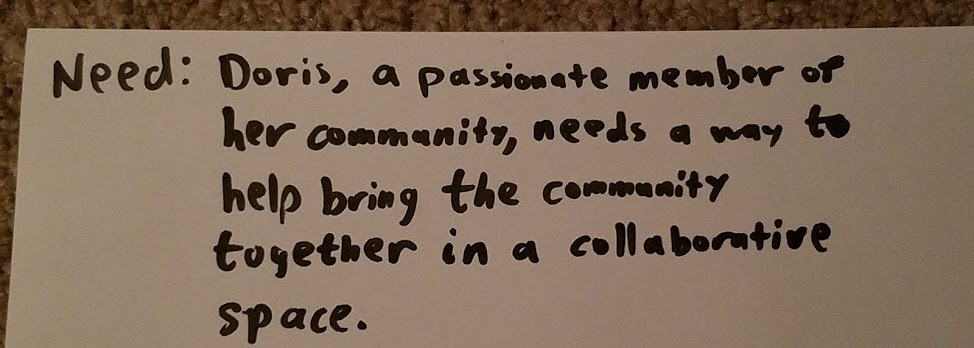 Need: Doris, a passionate member of
her community, needs a way to
help bring the community
together in a collaborative
space.